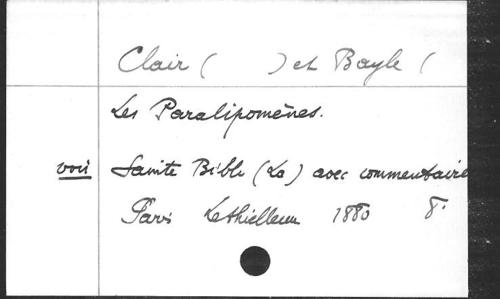 Clair ( ) et Bayle (
Les Paralipomènes.
voir Sainte Bible (La) avec commentaire
Paris Lethielleux 1880 8°